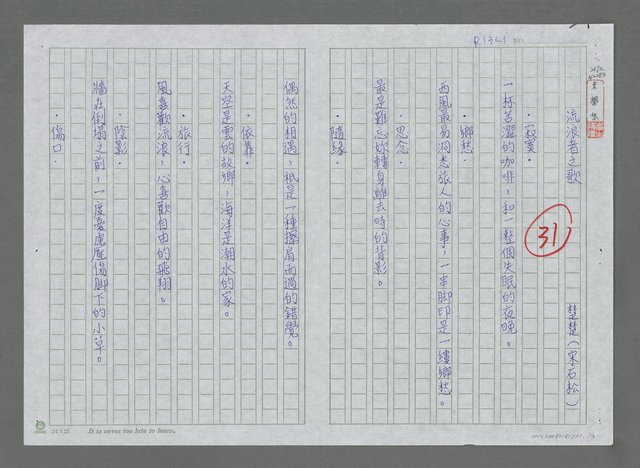 流浪者之歌
楚楚（宋石松）
·寂寞·
一杯苦澀的咖啡，和一整個失眠的夜晚。
·鄉愁·
西風最易洞悉旅人的心事，一串腳印是一縷鄉愁。
·思念·
最是難忘妳轉身離去時的背影。
·隨緣·
偶然的相遇，祇是一種擦肩而過的錯覺。
·依靠·
天空是雲的故鄉，海洋是潮水的家。
·旅行·
風喜歡流浪，心喜歡自由的飛翔。
·陰影·
牆在倒塌之前，一度憂慮壓傷腳下的小草。
·傷口
31
R1341 NO.
24×25 It is never too late to learn.